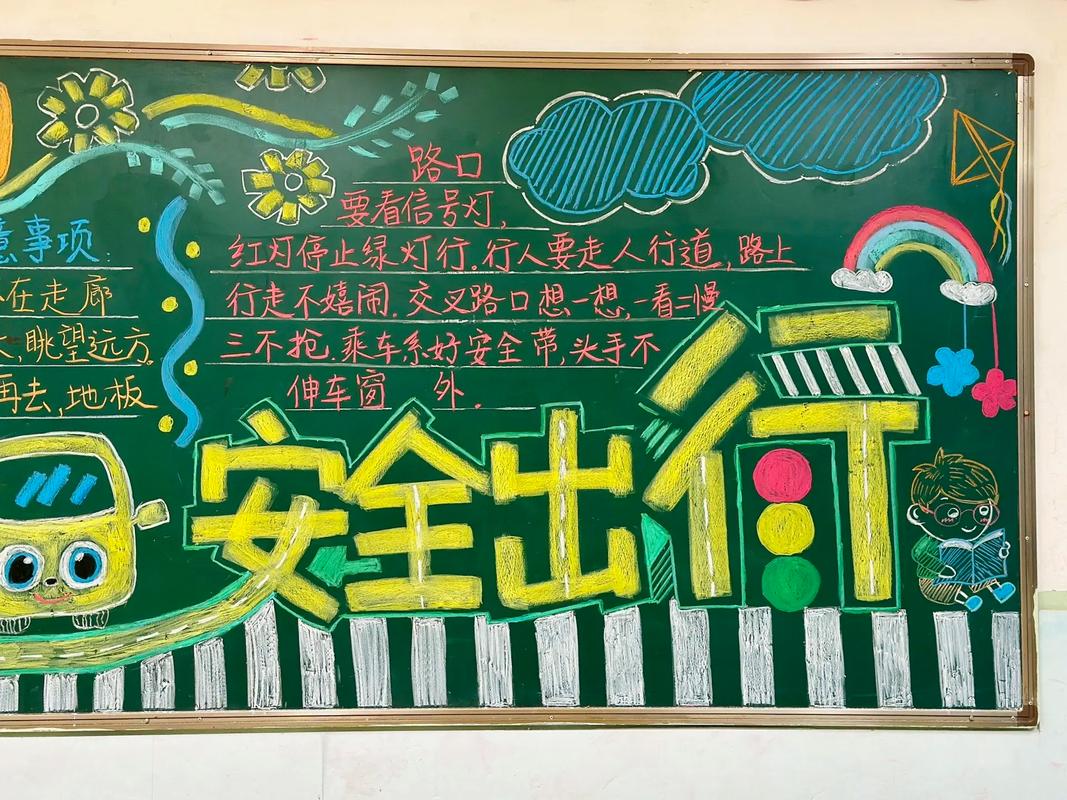 意事项:
在走廊
,眺望远方。
再去,地板
路口
要看信号灯,
红灯停止绿灯行.行人要走人行道,路上
行走不嬉闹.交叉路口想一想,一看二慢
三不抢.乘车系好安全带,头手不
伸车窗 外.
安全出行